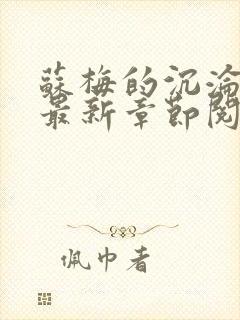 蘇梅的沉淪
最新章節閱
佩巾者